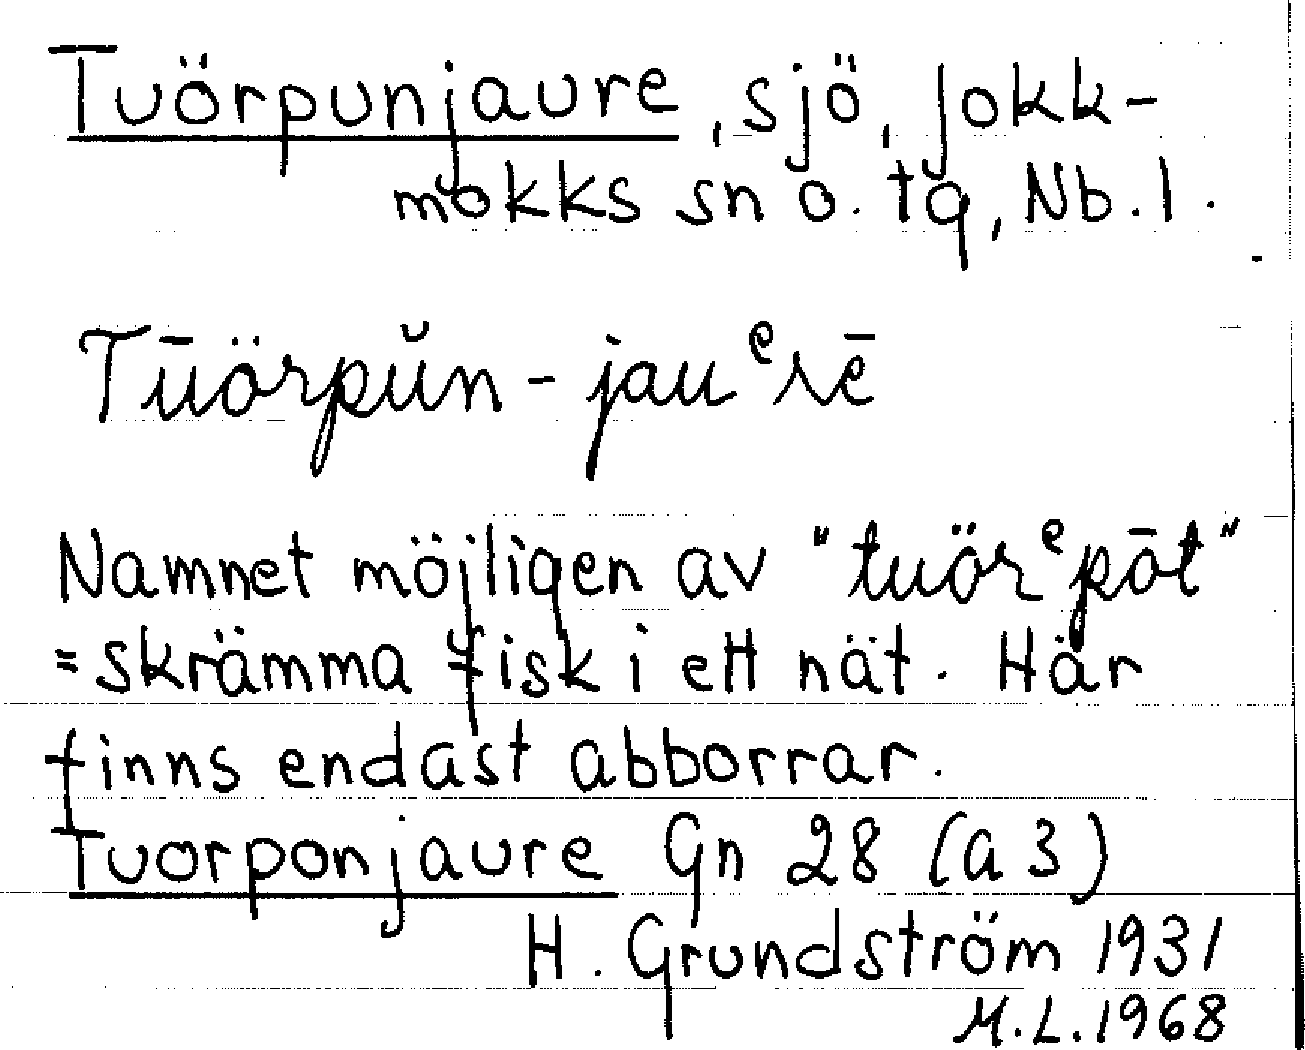 Tuörpunjaure, sjö, Jokk-
mokks sn o. tg, Nb. l.
Tūörpŭn-jauᵉrē
Namnet möjligen av "tuörᵉpōt"
= skrämma fisk i ett nät. Här
finns endast abborrar.
Tuorponjaure Gn 28 (a 3)
H. Grundström 1931
M.L. 1968